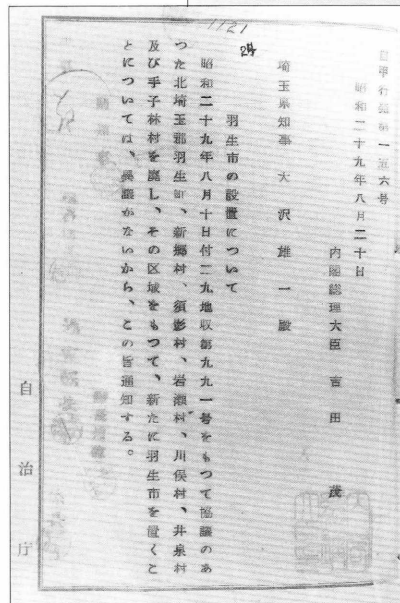 1121
24
自甲行発第一五六号
昭和二十九年八月二十日
内閣総理大臣 吉田 茂
埼玉県知事 大沢雄一殿
羽生市の設置について
昭和二十九年八月十日付二九地収第九九一号をもつて協議のあ
つた北埼玉郡羽生町、新郷村、須影村、岩瀬村、川俣村、井泉村
及び手子林村を廃し、その区域をもつて、新たに羽生市を置くこ
とについては、異議がないから、この旨通知する。
自治庁